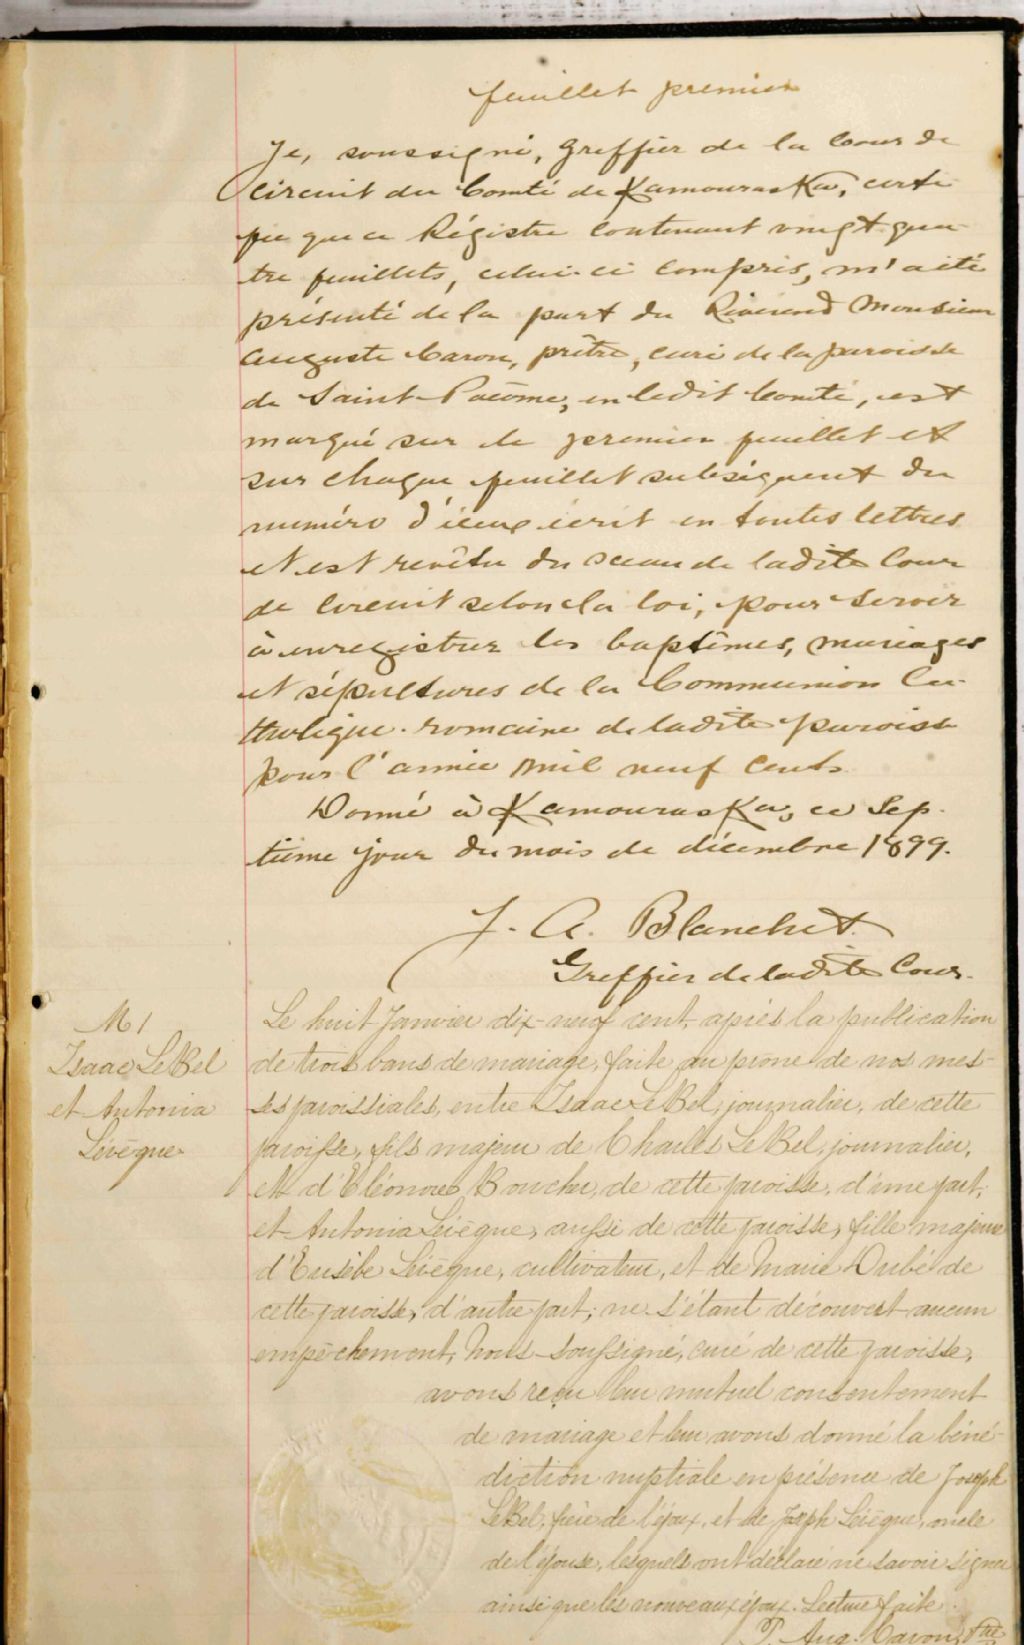 feuillet premier
Je, soussigné, Greffier de la Cour de
Circuit du Comté de Kamouraska, certi
fie que ce Régistre contenant vingt-qua-
tre feuillets, celui-ci compris, m'a été
présenté de la part du Révérend Monsieur
Auguste Caron, prêtre, curé de la paroisse
de Saint-Pacôme, en ledit Comté, est
marqué sur le premier feuillet et
sur chaque feuillet subséquent du
numéro d'iceux écrit en toutes lettres
et est revêtu du sceau de ladite Cour
de Circuit selon la loi, pour servir
à enregistrer les baptêmes, mariages
et sépultures de la Communion Ca-
tholique-romaine de ladite paroisse
pour l'année mil neuf cents
Donné à Kamouraska, ce Sep-
tième jour du mois de décembre 1899.
J. A. Blanchet
Greffier de ladite Cour.
M 1
Isaac LeBel
et Antonia
Lévêque
Le huit Janvier dix-neuf cent, après la publication
de trois bans de mariage, faite au prône de nos mes-
ses paroissiales, entre Isaac LeBel, journalier, de cette
paroisse, fils majeur de Charles LeBel, journalier,
et d'Eléonore Boucher, de cette paroisse, d'une part;
et Antonia Lévêque, aussi de cette paroisse, fille majeure
d'Eusèbe Lévêque, cultivateur, et de Marie Dubé de
cette paroisse, d'autre part; ne s'étant découvert aucun
empêchement, Nous soussigné, curé de cette paroisse,
avons reçu leur mutuel consentement
de mariage et leur avons donné la béné-
diction nuptiale en présence de Joseph
LeBel, frère de l'époux, et de Joseph Lévêque, oncle
de l'épouse, lesquels ont déclaré ne savoir signer
ainsi que les nouveaux époux. Lecture faite.
P. Aug. Caron, Ptre